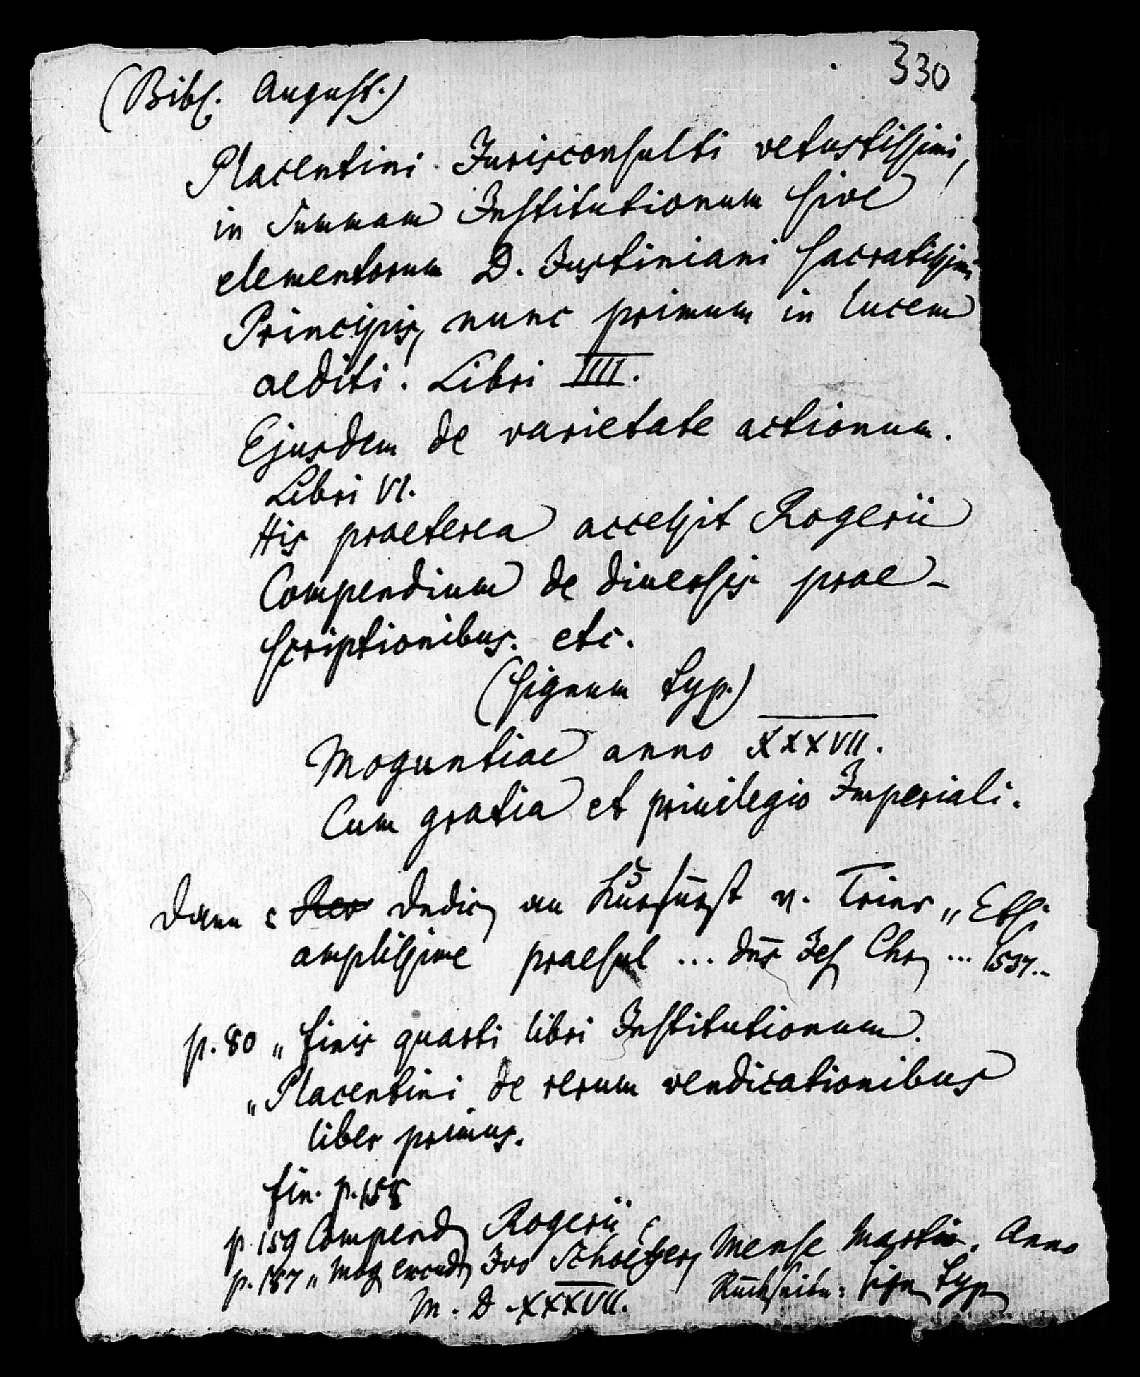 330
(Bibl. August.)
Placentini Jurisconsulti vetustissimi,
in Summam Institutionum sive
elementorum D. Justiniani sacratissimi
Principis, nunc primum in lucem
aediti. Libri IIII.
Ejusdem de varietate actionum.
Libri VI.
His praeterea accessit Rogerii
Compendium de diuersis prae-
scriptionibus. etc.
(signum typ.)
Moguntiae anno XXXVII.
Cum gratia et priuilegio Imperiali.
Dann Dedic an Kurfürst v. Trier „Etsi
amplissime praesul ... dūs Jes Chr ... 1537..
p. 80 „finis quarti libri Institutionum.
„Placentini de rerum vendicationibus
liber primus.
fin. p. 158
p. 159 Compend Rogerii
p. 187 „Mog excud Ivo Schoeffer, Mense Martio. Anno
M. D. XXXVII. Rückseite: Sign typ